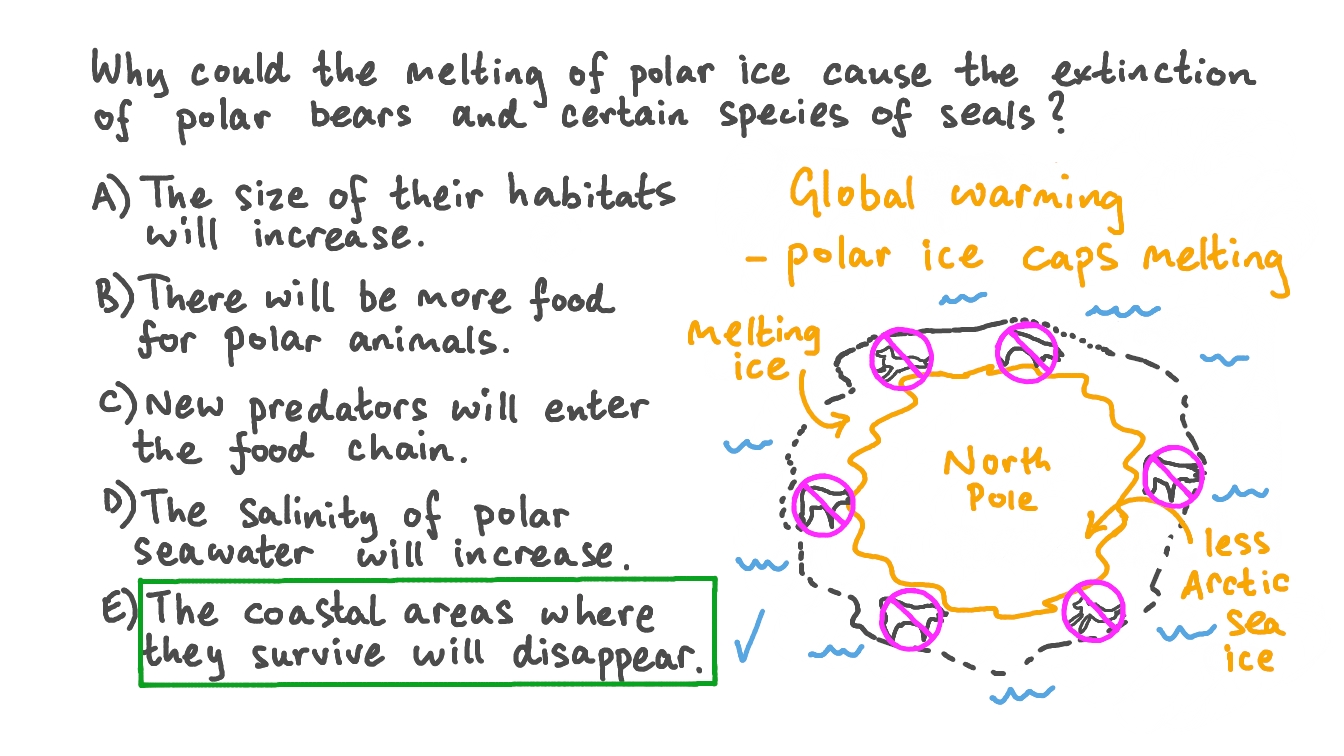 Why could the melting of polar ice cause the extinction
of polar bears and certain species of seals?
A) The size of their habitats
will increase.
B) There will be more food
for polar animals.
C) New predators will enter
the food chain.
D) The salinity of polar
seawater will increase.
E) The coastal areas where
they survive will disappear.
Global warming
- polar ice caps melting
melting
ice
North
Pole
less
Arctic
sea
ice